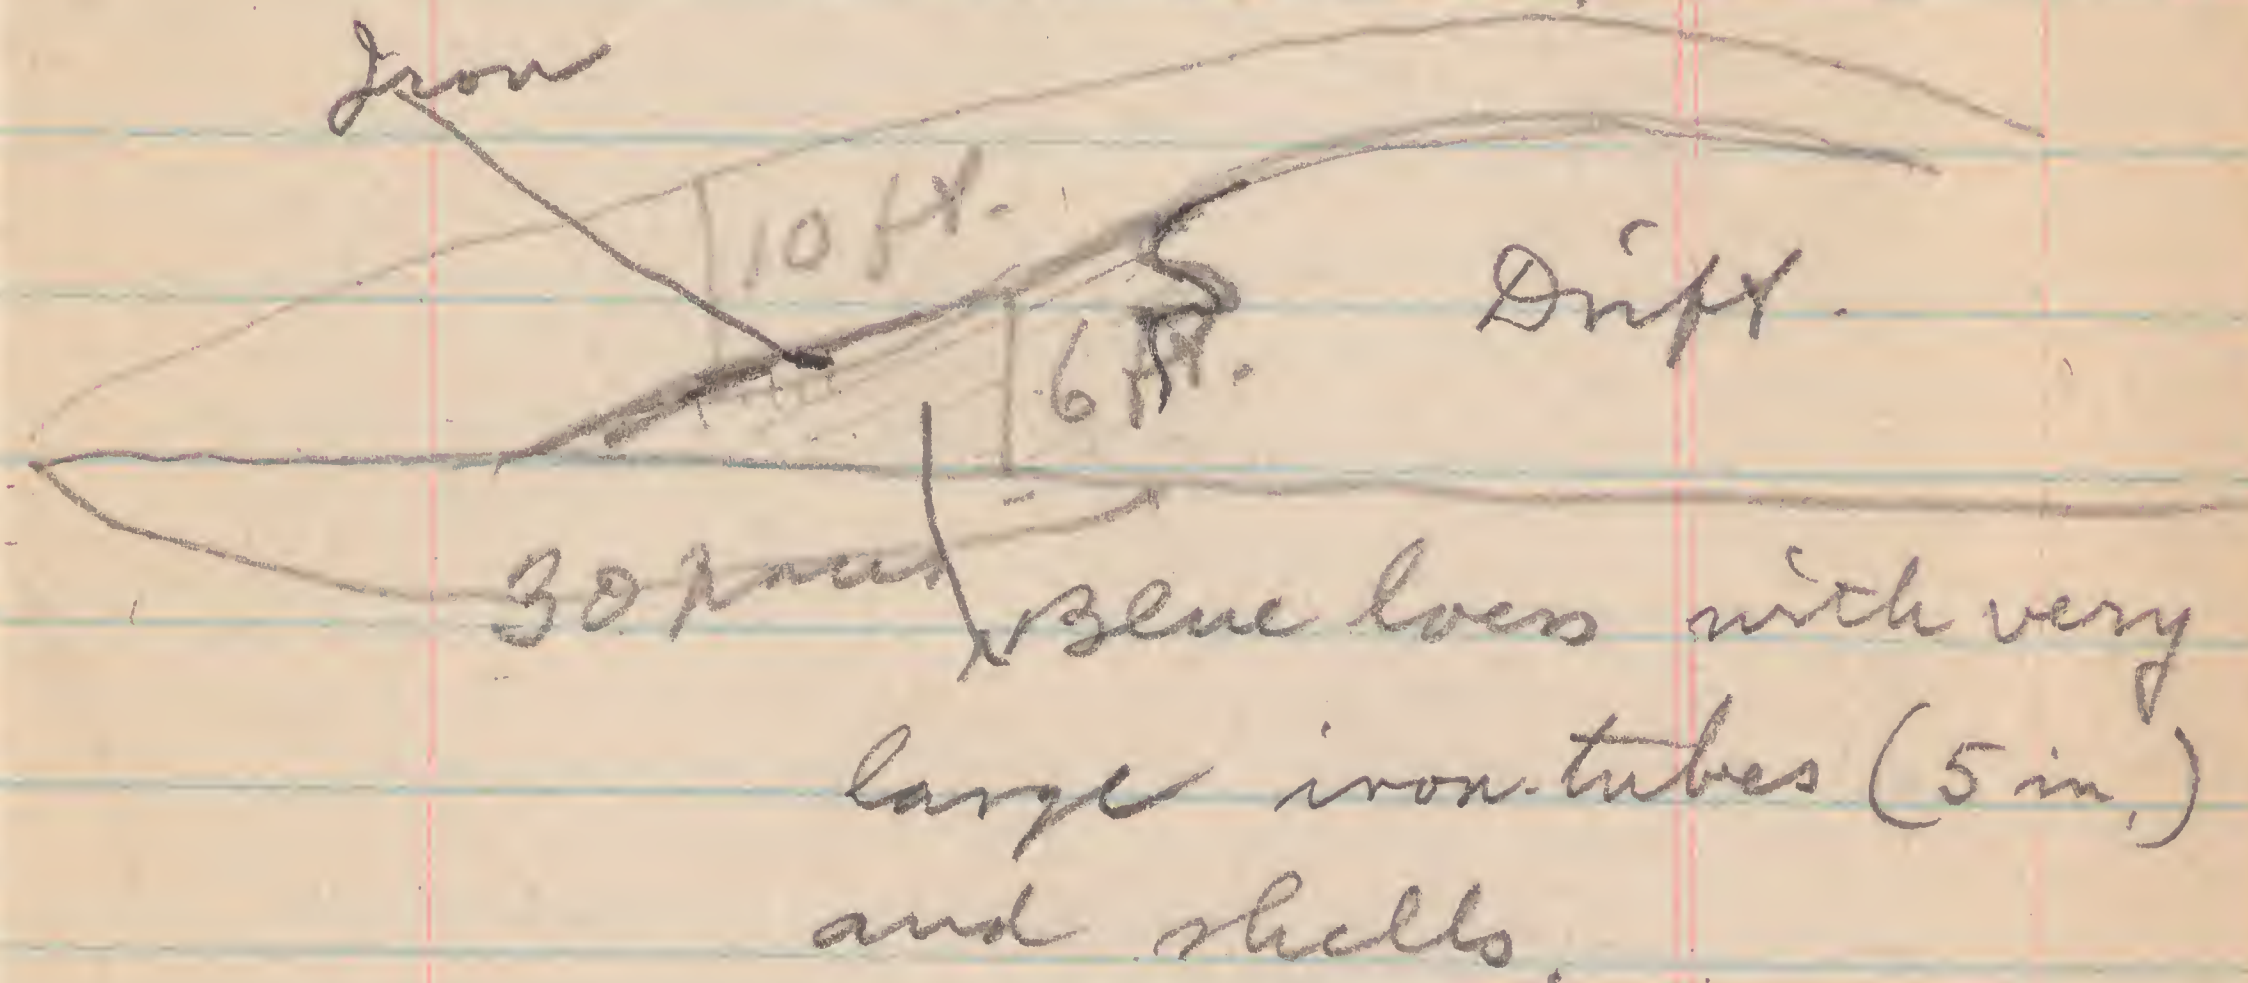 Iron
10 ft.
6 ft.
Drift.
30 paces
Blue loess with very
large iron-tubes (5 in.)
and shells.